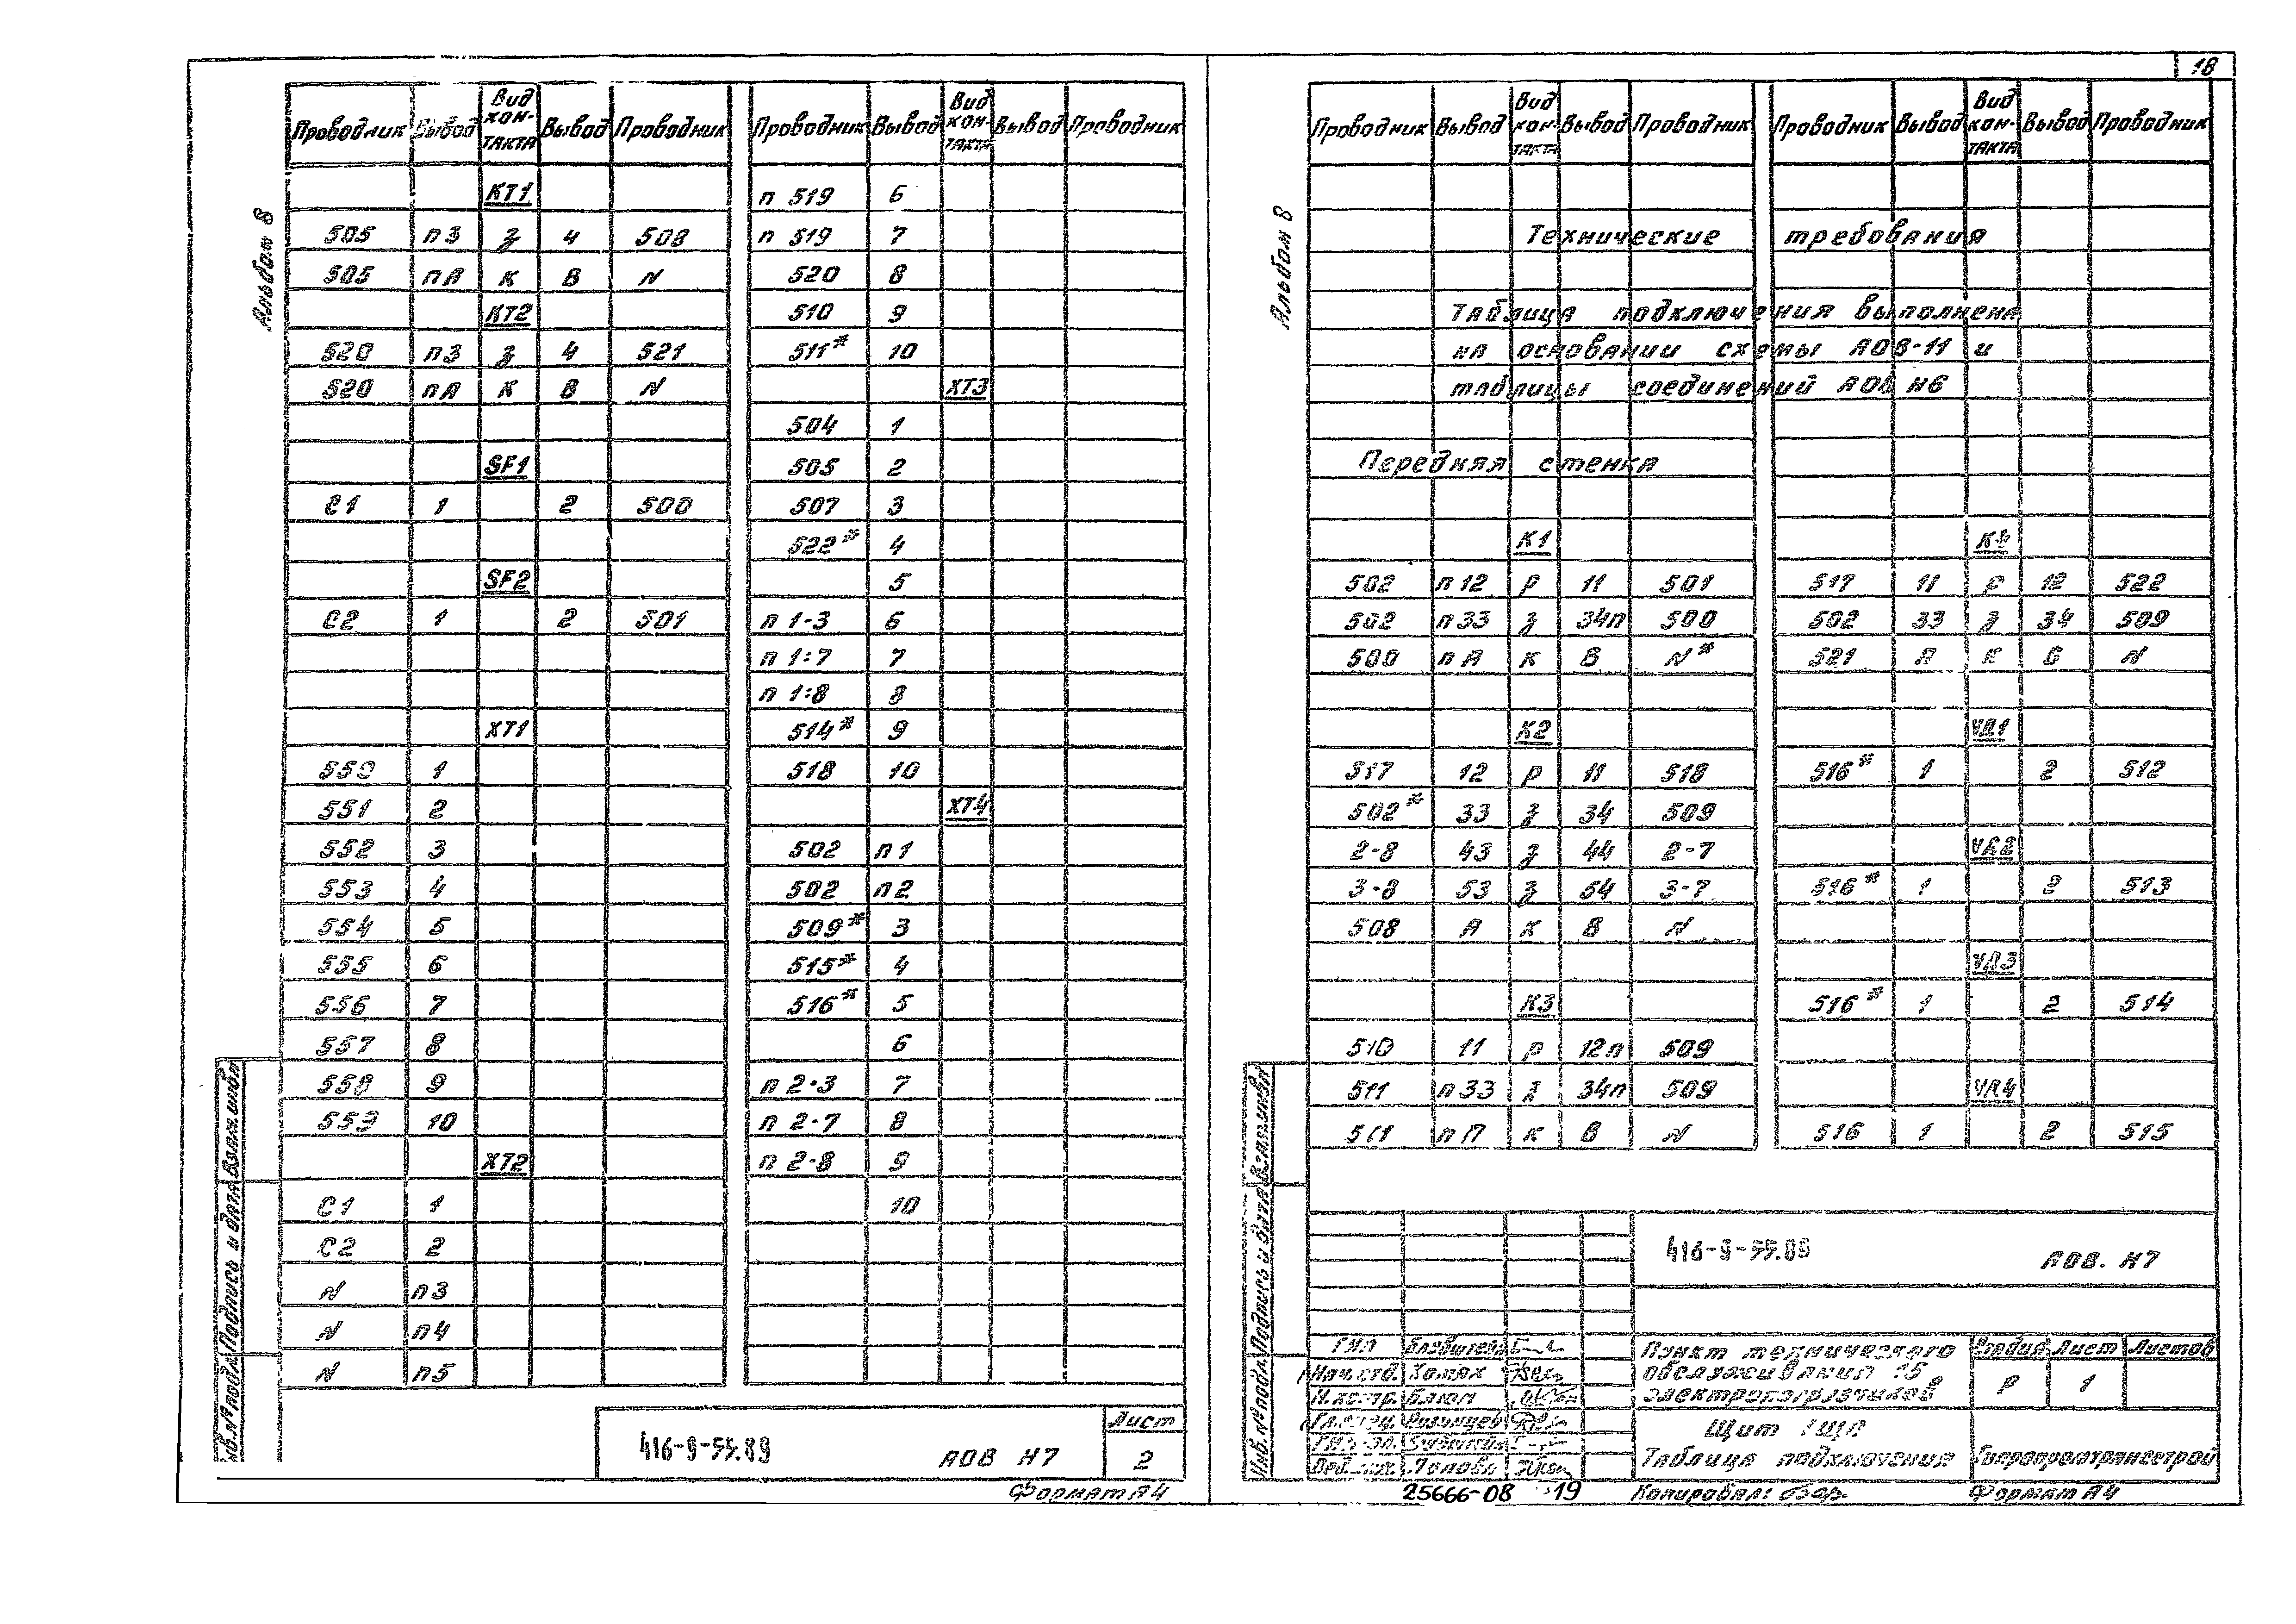 18
Альбом 8
Проводник Вывод Вид кон- такта Вывод Проводник
КТ1
505 п3 з 4 508
505 пА к В N
КТ2
520 п3 з 4 521
520 пА к В N
SF1
С1 1 2 500
SF2
С2 1 2 501
ХТ1
550 1
551 2
552 3
553 4
554 5
555 6
556 7
557 8
558 9
559 10
ХТ2
С1 1
С2 2
N п3
N п4
N п5
Проводник Вывод Вид кон- такта Вывод Проводник
п 519 6
п 519 7
520 8
510 9
511* 10
ХТ3
504 1
505 2
507 3
522* 4
5
п 1-3 6
п 1:7 7
п 1:8 8
514* 9
518 10
ХТ4
502 п1
502 п2
509* 3
515* 4
516* 5
6
п 2-3 7
п 2-7 8
п 2-8 9
10
Инв.№подл. Подпись и дата Взам.инв№
416-9-55.89 АОВ Н7
Лист
2
Формат А4
Альбом 8
Проводник Вывод Вид кон- такта Вывод Проводник
Проводник Вывод Вид кон- такта Вывод Проводник
Технические требования
Таблица подключения выполнена
на основании схемы АОВ-11 и
таблицы соединений АОВ Н6
Передняя стенка
К1
502 п12 р 11 501
502 п33 з 34п 500
500 пА к В N*
К2
517 12 р 11 518
502* 33 з 34 509
2-8 43 з 44 2-7
3-8 53 з 54 3-7
508 А к В N
К3
510 11 р 12п 509
511 п33 з 34п 509
511 п к В N
517 11 12 522
502 33 з 34 509
521 А к N
VД1
516* 1 2 512
VД2
516* 1 2 513
VД3
516* 1 2 514
VД4
516 1 2 515
Инв.№подл. Подпись и дата Взам.инв№
416-9-55.89
АОВ. Н7
ГИП
Нач.отд. Хомях
Н.контр. Блюм
Гл.спец.
Попова
Пункт технического
обслуживания 15
электропогрузчиков
Стадия Лист Листов
Р 1
Щит 1ЩА
Таблица подключения
Гипропромтрансстрой
25666-08 19
Копировал:
Формат А4